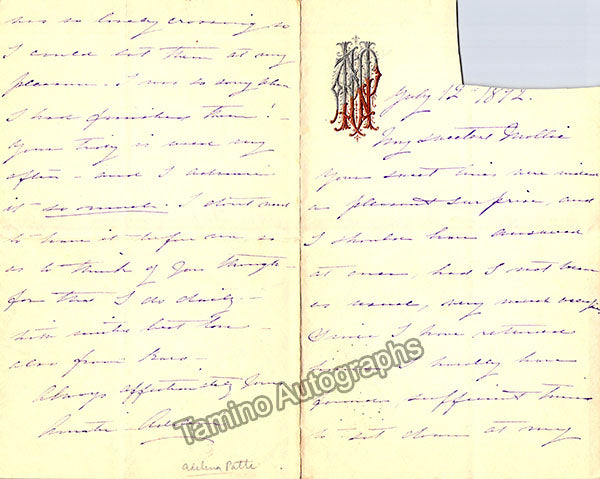 July 12th 1872.
My dearest Mollie
Your sweet lines were indeed
a pleasant surprise, and
I should have answered
at once, had I not been
as usual, very much
Since I have returned
I hardly have
sufficient time
to sit down at my
was so lovely crossing so
I could eat them at my
pleasure. I was so sorry when
I had finished them! -
Your is used very
often - and I admire
it so much. I dont need
to have it before me so
as to think of you though -
for that I do daily. -
with best love -
also from
Always affectionately Yours
Adelina Patti
Tamino Autographs